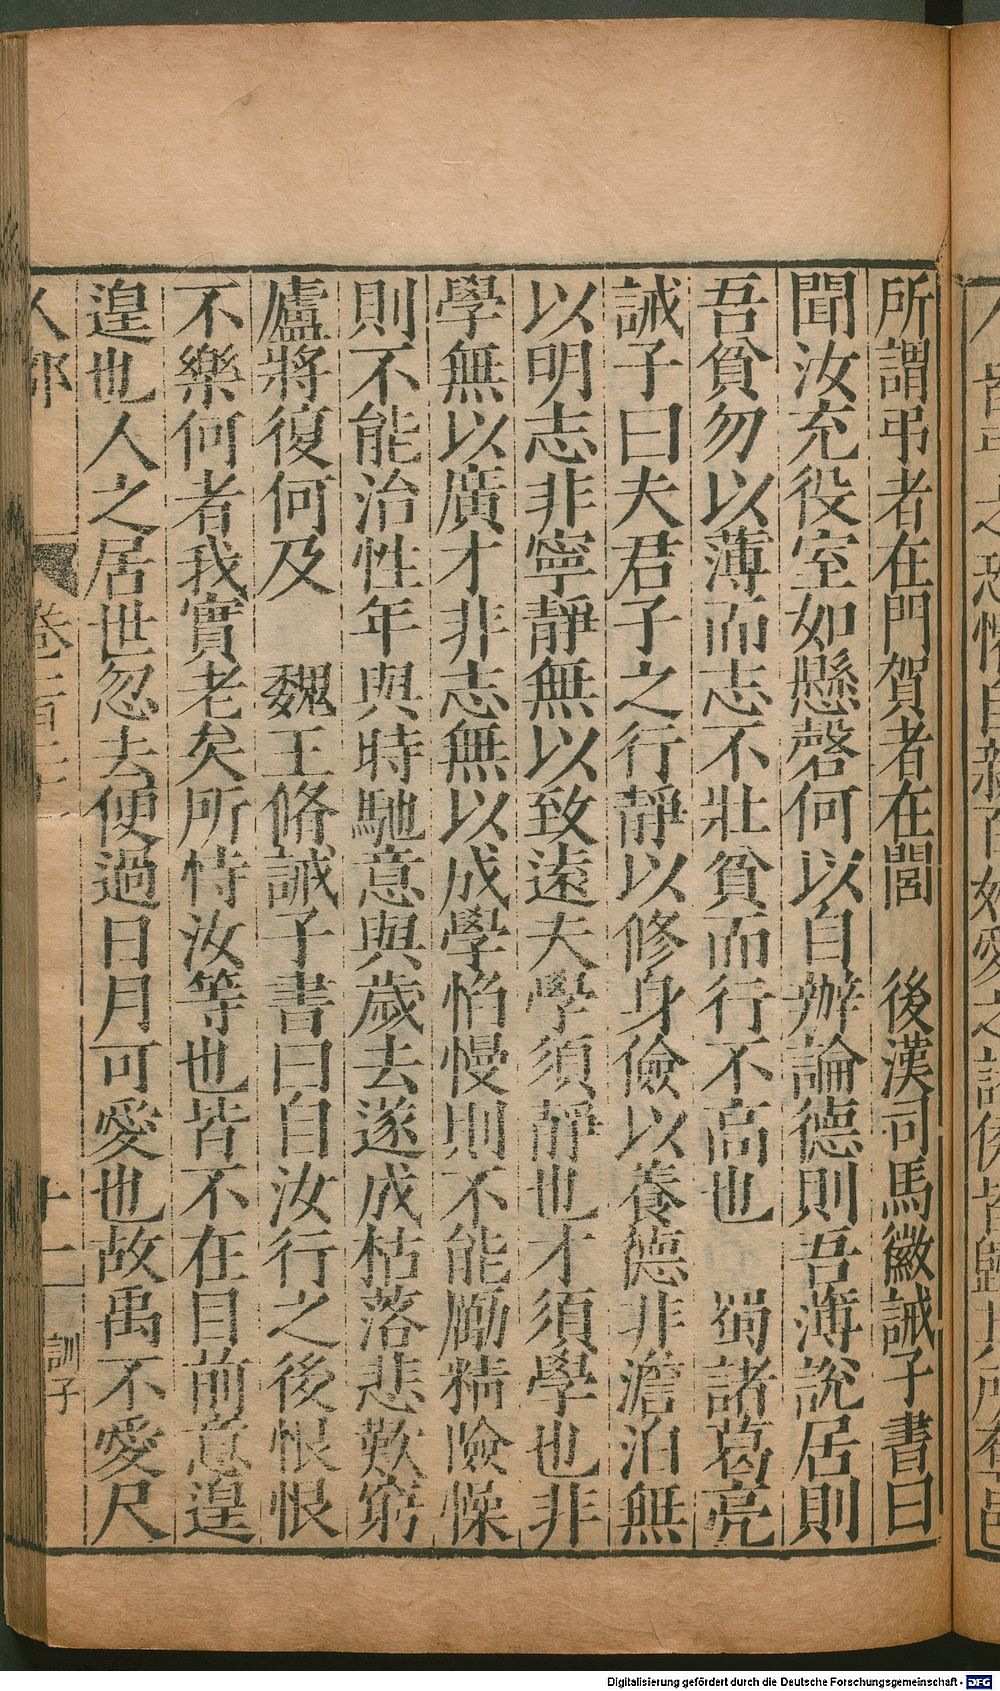 所謂弔者在門賀者在閭　後漢司馬徽誡子書曰
聞汝充役室如懸磬何以自辦論德則吾薄說居則
吾貧勿以薄而志不壯貧而行不高也　蜀諸葛亮
誡子曰夫君子之行靜以修身儉以養德非澹泊無
以明志非寧靜無以致遠夫學須靜也才須學也非
學無以廣才非志無以成學慆慢則不能勵精險懆
則不能治性年與時馳意與歲去遂成枯落悲歎窮
廬將復何及　魏王脩誡子書曰自汝行之後恨恨
不樂何者我實老矣所恃汝等也皆不在目前意遑
遑也人之居世忽去便過日月可愛也故禹不愛尺
人部
卷二百三
十一
訓子
Digitalisierung gefördert durch die Deutsche Forschungsgemeinschaft - DFG